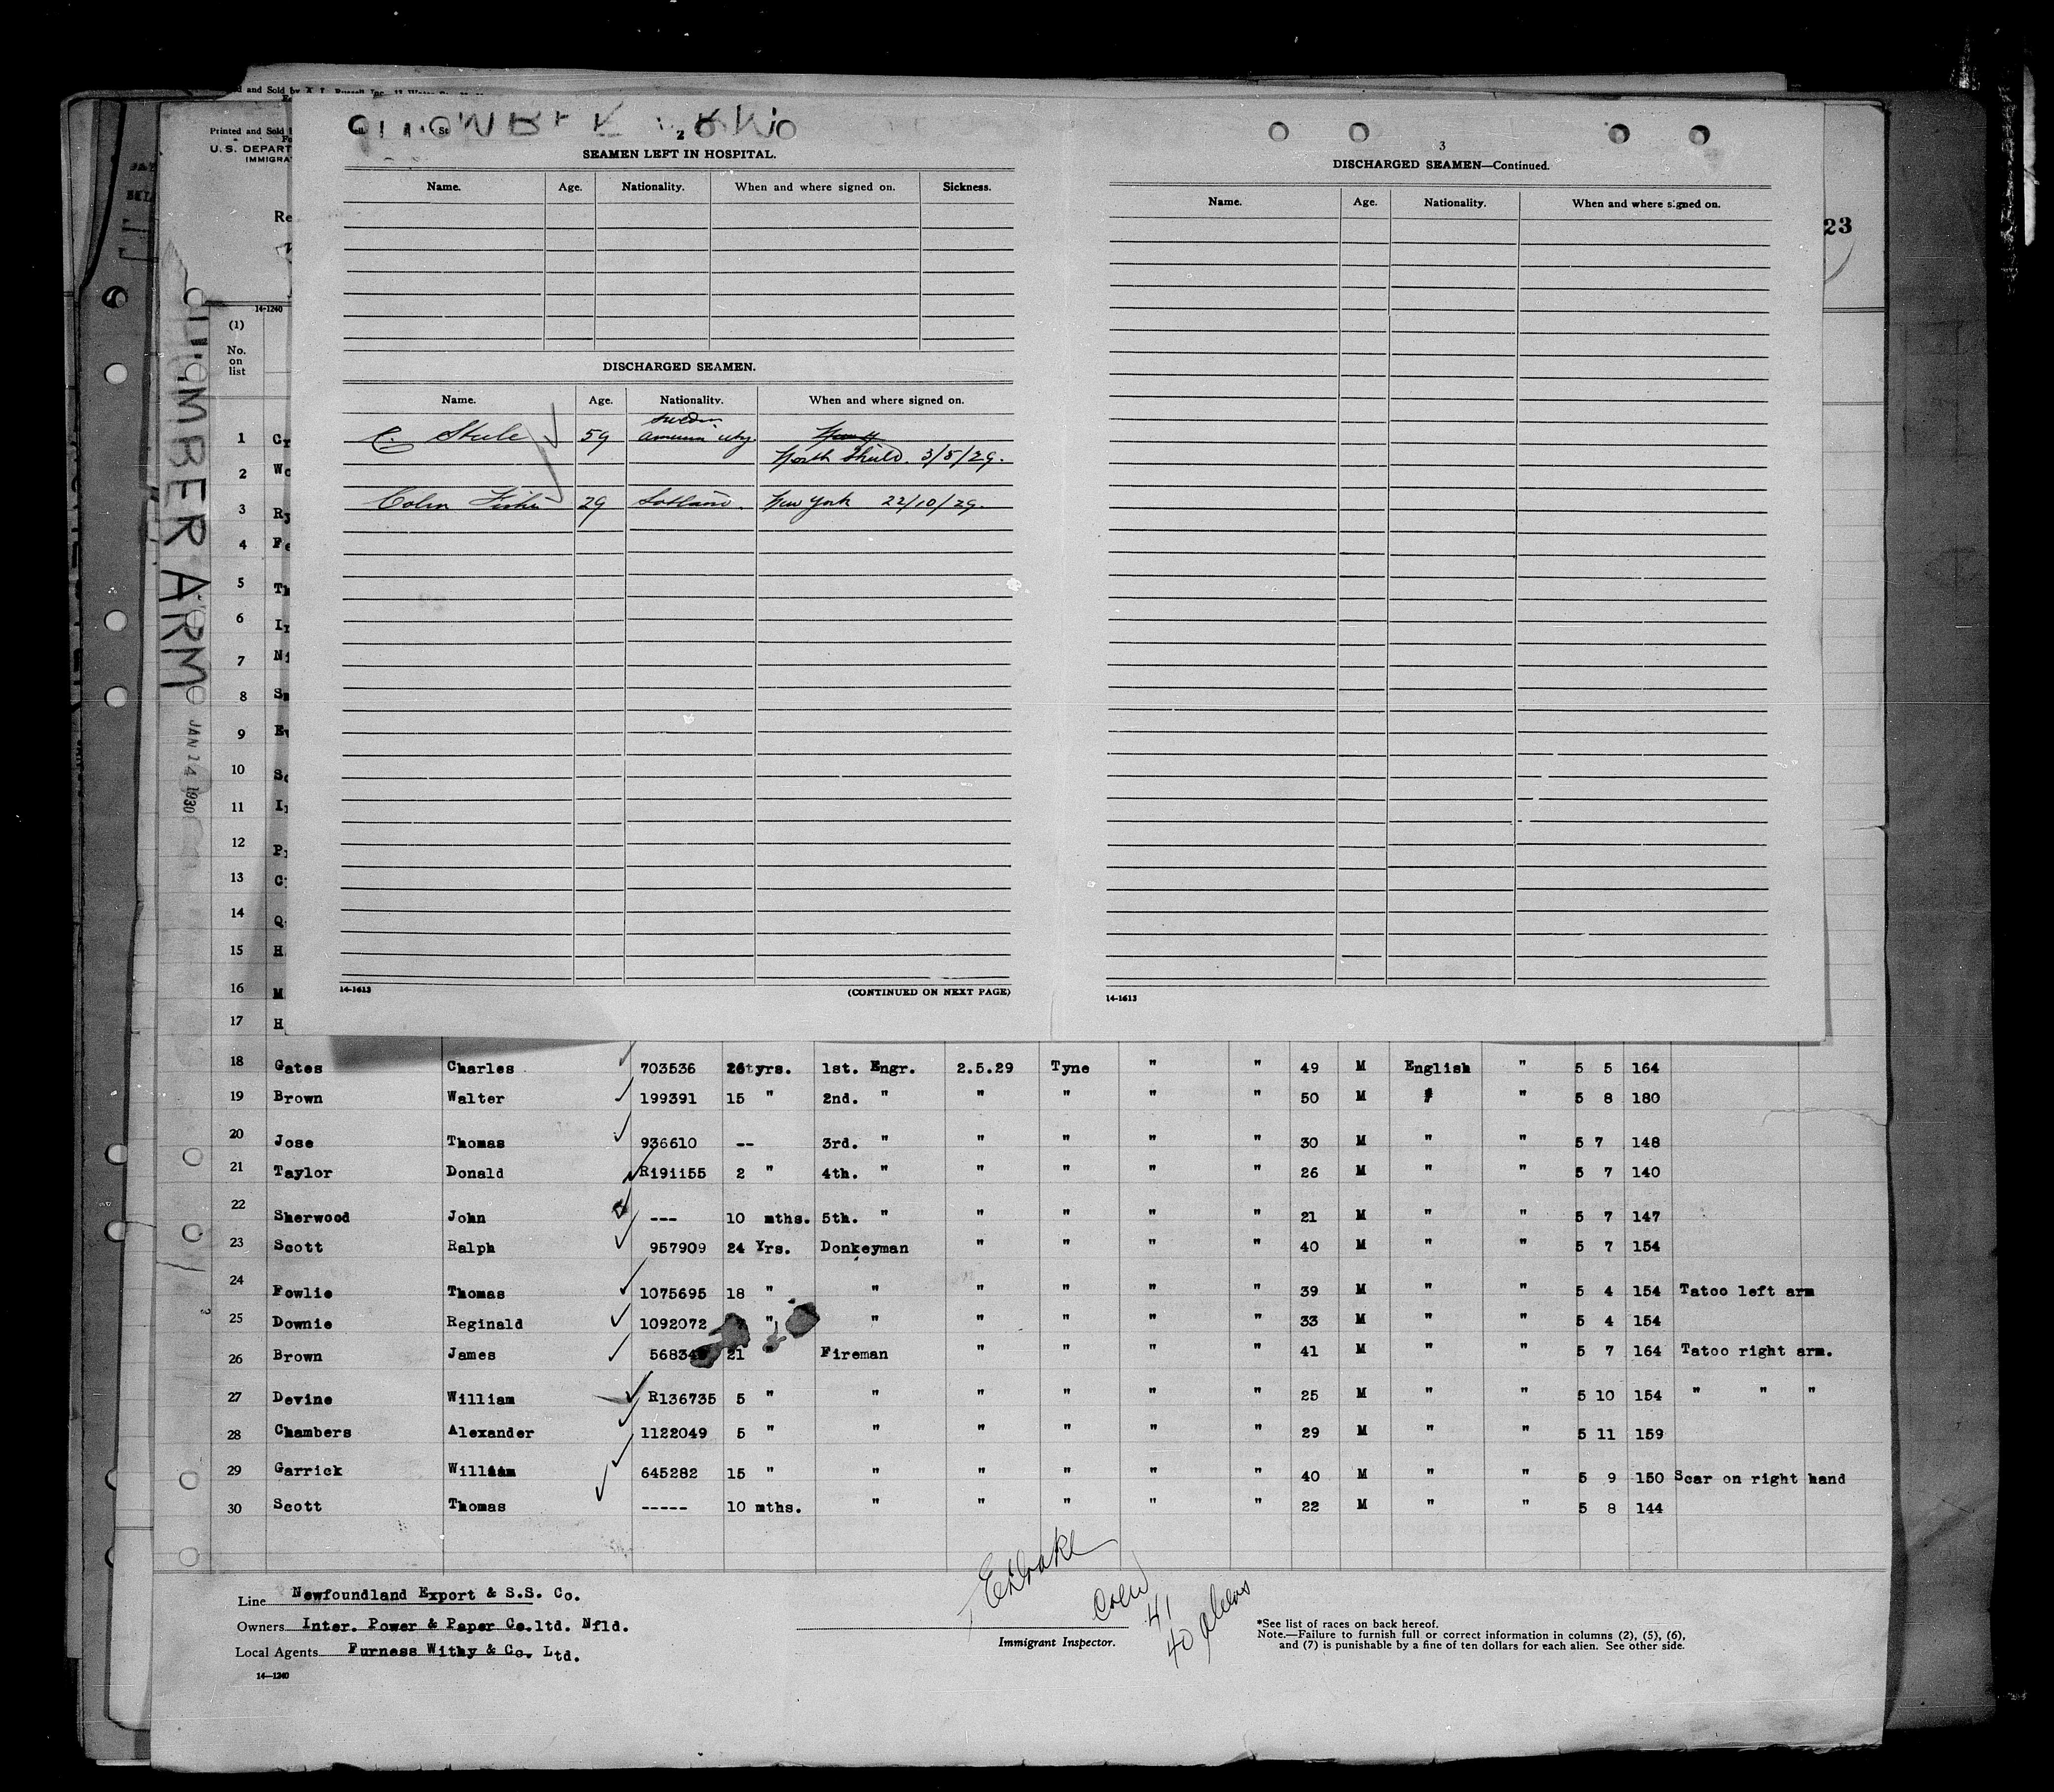 Printed and Sold
U. S. DEPART
IMMIGRA
Re
14-1240
(1)
No.
on
list
23
HUMBER ARM
JAN 14 1930
2
SEAMEN LEFT IN HOSPITAL.
Name. Age. Nationality. When and where signed on. Sickness.
DISCHARGED SEAMEN.
Name. Age. Nationality. When and where signed on.
Sweden
C. Steele 59 American citz.
North Shield. 3/5/29.
Colin Fisher 29 Scotland. New York 22/10/29.
14-1613 (CONTINUED ON NEXT PAGE)
3
DISCHARGED SEAMEN—Continued.
Name. Age. Nationality. When and where signed on.
14-1613
1
2
3
4
5
6
7
8
9
10
11
12
13
14
15
16
17
18 Gates Charles 703536 26 yrs. 1st. Engr. 2.5.29 Tyne " " 49 M English " 5 5 164
19 Brown Walter 199391 15 " 2nd. " " " " " 50 M " " 5 8 180
20 Jose Thomas 936610 -- 3rd. " " " " " 30 M " " 5 7 148
21 Taylor Donald R191155 2 " 4th. " " " " " 26 M " " 5 7 140
22 Sherwood John --- 10 mths. 5th. " " " " " 21 M " " 5 7 147
23 Scott Ralph 957909 24 Yrs. Donkeyman " " " " 40 M " " 5 7 154
24 Fowlie Thomas 1075695 18 " " " " " " 39 M " " 5 4 154 Tatoo left arm
25 Downie Reginald 1092072 " " " " " " 33 M " " 5 4 154
26 Brown James 21 Fireman " " " " 41 M " " 5 7 164 Tatoo right arm.
27 Devine William R136735 5 " " " " " " 25 M " " 5 10 154 " " "
28 Chambers Alexander 1122049 5 " " " " " " 29 M " " 5 11 159
29 Garrick William 645282 15 " " " " " " 40 M " " 5 9 150 Scar on right hand
30 Scott Thomas ----- 10 mths. " " " " " 22 M " " 5 8 144
Line Newfoundland Export & S.S. Co.
Owners Inter. Power & Paper Co.ltd. Nfld.
Local Agents Furness Withy & Co. Ltd.
14-1240
Drake
Immigrant Inspector.
Crew 41
40 aliens
*See list of races on back hereof.
Note.—Failure to furnish full or correct information in columns (2), (5), (6),
and (7) is punishable by a fine of ten dollars for each alien. See other side.